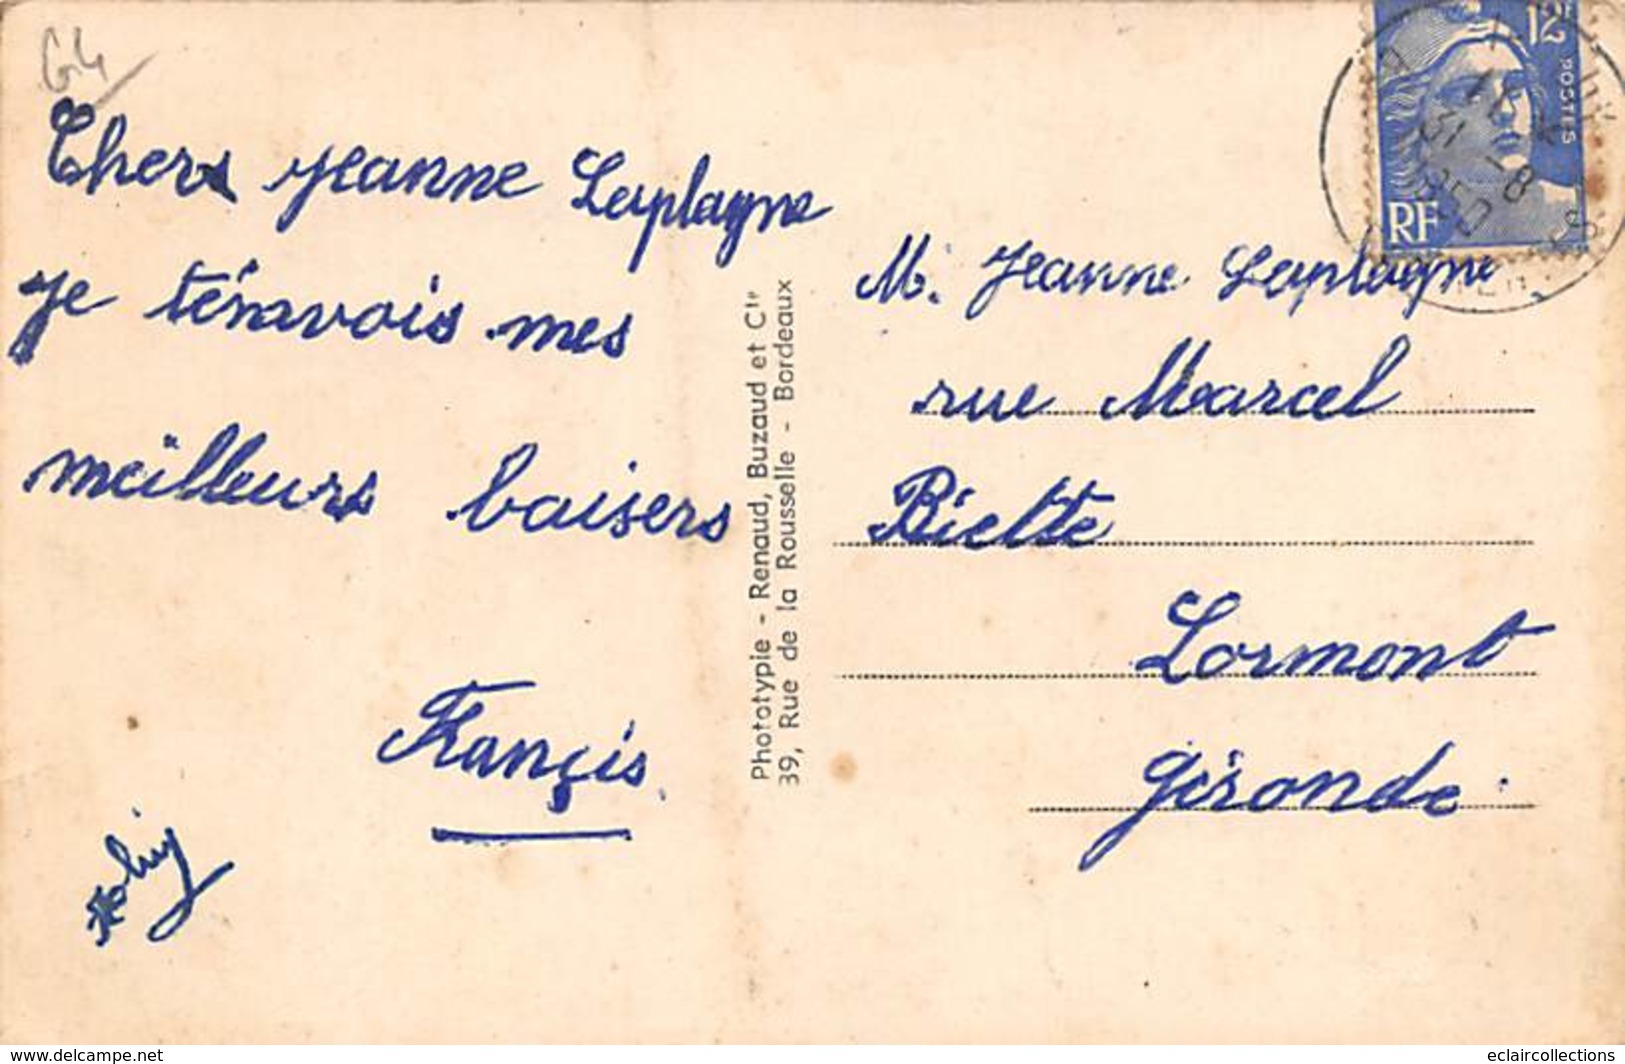 G4
Chers Jeanne Laplagne
je ténavois mes
meilleurs baisers
Françis
Phototypie - Renaud, Buzaud et Cie
39, Rue de la Rousselle - Bordeaux
12F
POSTES
RF
M. Jeanne Laplagne
rue Marcel
Biette
Lormont
Gironde
www.delcampe.net
eclaircollections